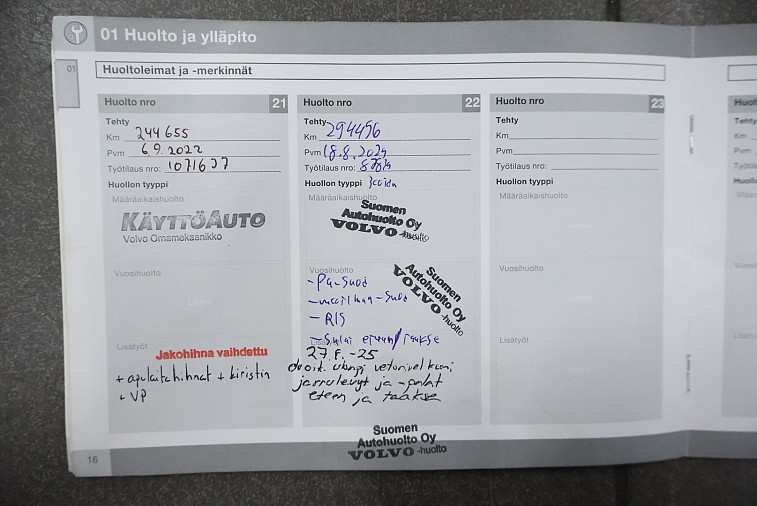 01 Huolto ja ylläpito
01
Huoltoleimat ja -merkinnät
Huolto nro 21
Tehty
Km 244 655
Pvm 6.9.2022
Työtilaus nro: 1071637
Huollon tyyppi
Määräaikaishuolto
KÄYTTÖAUTO
Volvo Omamekaanikko
Vuosihuolto
Lisätyöt
Jakohihna vaihdettu
+ apulaitehihnat + kiristin
+ VP
Huolto nro 22
Tehty
Km 294496
Pvm 18.8.2024
Työtilaus nro:
Huollon tyyppi
Määräaikaishuolto
Suomen
Autohuolto Oy
VOLVO -huolto
Vuosihuolto
- Pa-suod
- - suod
Suomen
Autohuolto Oy
VOLVO -huolto
-25
jarrulevyt ja -palat
eteen ja taakse
Suomen
Autohuolto Oy
VOLVO -huolto
Huolto nro 23
Tehty
Km
Pvm
Työtilaus nro:
Huollon tyyppi
Määräaikaishuolto
Vuosihuolto
Lisätyöt
Tehty
Km
Pvm
16